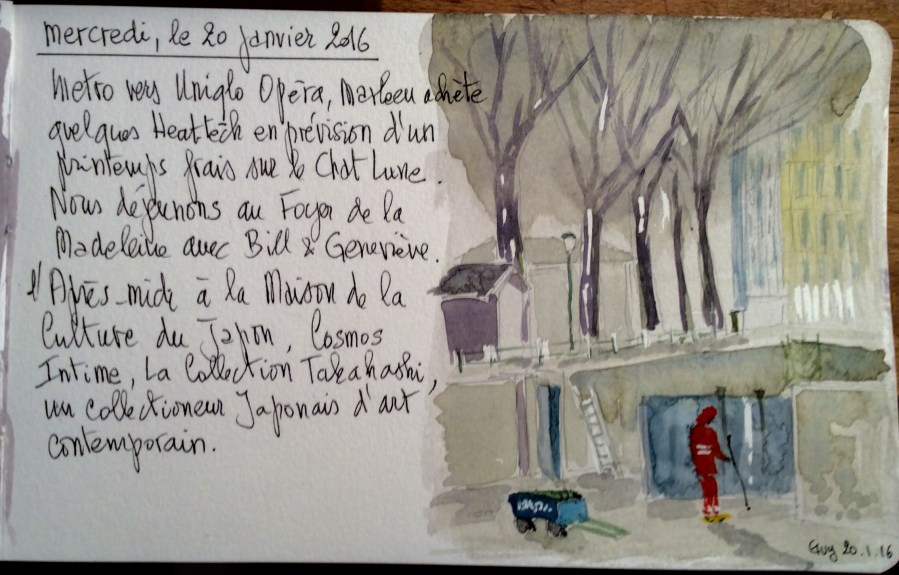 mercredi, le 20 janvier 2016
Metro vers Uniqlo Opéra, Marleen achète
quelques Heattech en prévision d'un
printemps frais sur le Chat Lune.
Nous déjeunons au Foyer de la
Madeleine avec Bill & Geneviève.
l'Après-midi à la Maison de la
Culture du Japon, Cosmos
Intime, La Collection Takahashi,
un collectioneur Japonais d'art
contemporain.
Guy 20.1.16